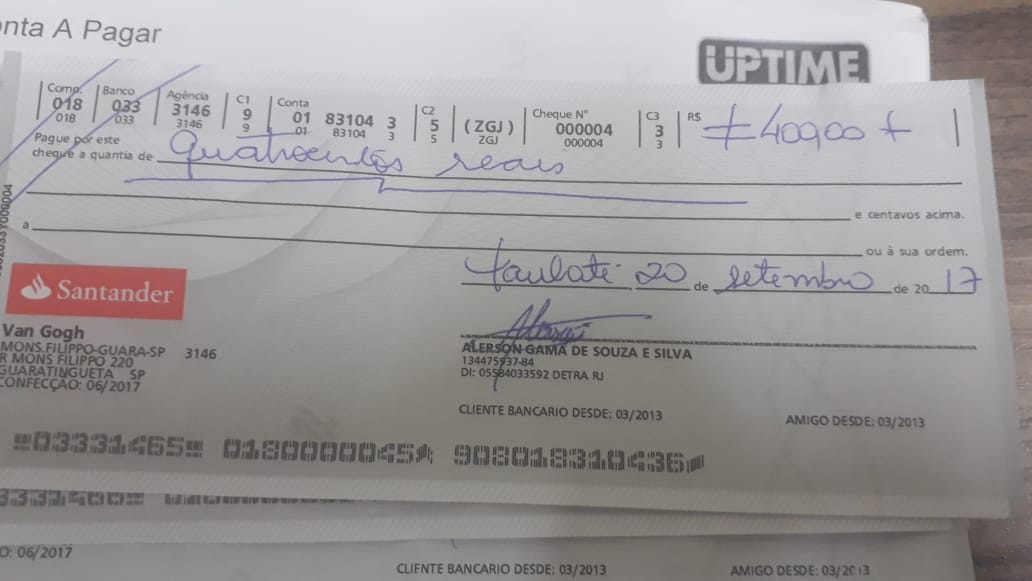 nta A Pagar
UPTIME
Comp. Banco Agência C1 Conta C2 Cheque Nº C3 R$
018 033 3146 9 01 83104 3 5 (ZGJ) 000004 3 #400,00#
018 033 3146 9 01 83104 3 5 ZGJ 000004 3
Pague por este
cheque a quantia de Quatrocentos reais
e centavos acima.
a ou à sua ordem.
Taubaté 20 de setembro de 20 17
Santander
Van Gogh
MONS.FILIPPO-GUARA-SP 3146
R MONS FILIPPO 220
GUARATINGUETA SP
CONFECÇÃO: 06/2017
ALERSON GAMA DE SOUZA E SILVA
134475937-84
DI: 05584033592 DETRA RJ
CLIENTE BANCARIO DESDE: 03/2013 AMIGO DESDE: 03/2013
03331465 0180000045 908018310436
O: 06/2017
CLIENTE BANCARIO DESDE: 03/2013 AMIGO DESDE: 03/2013